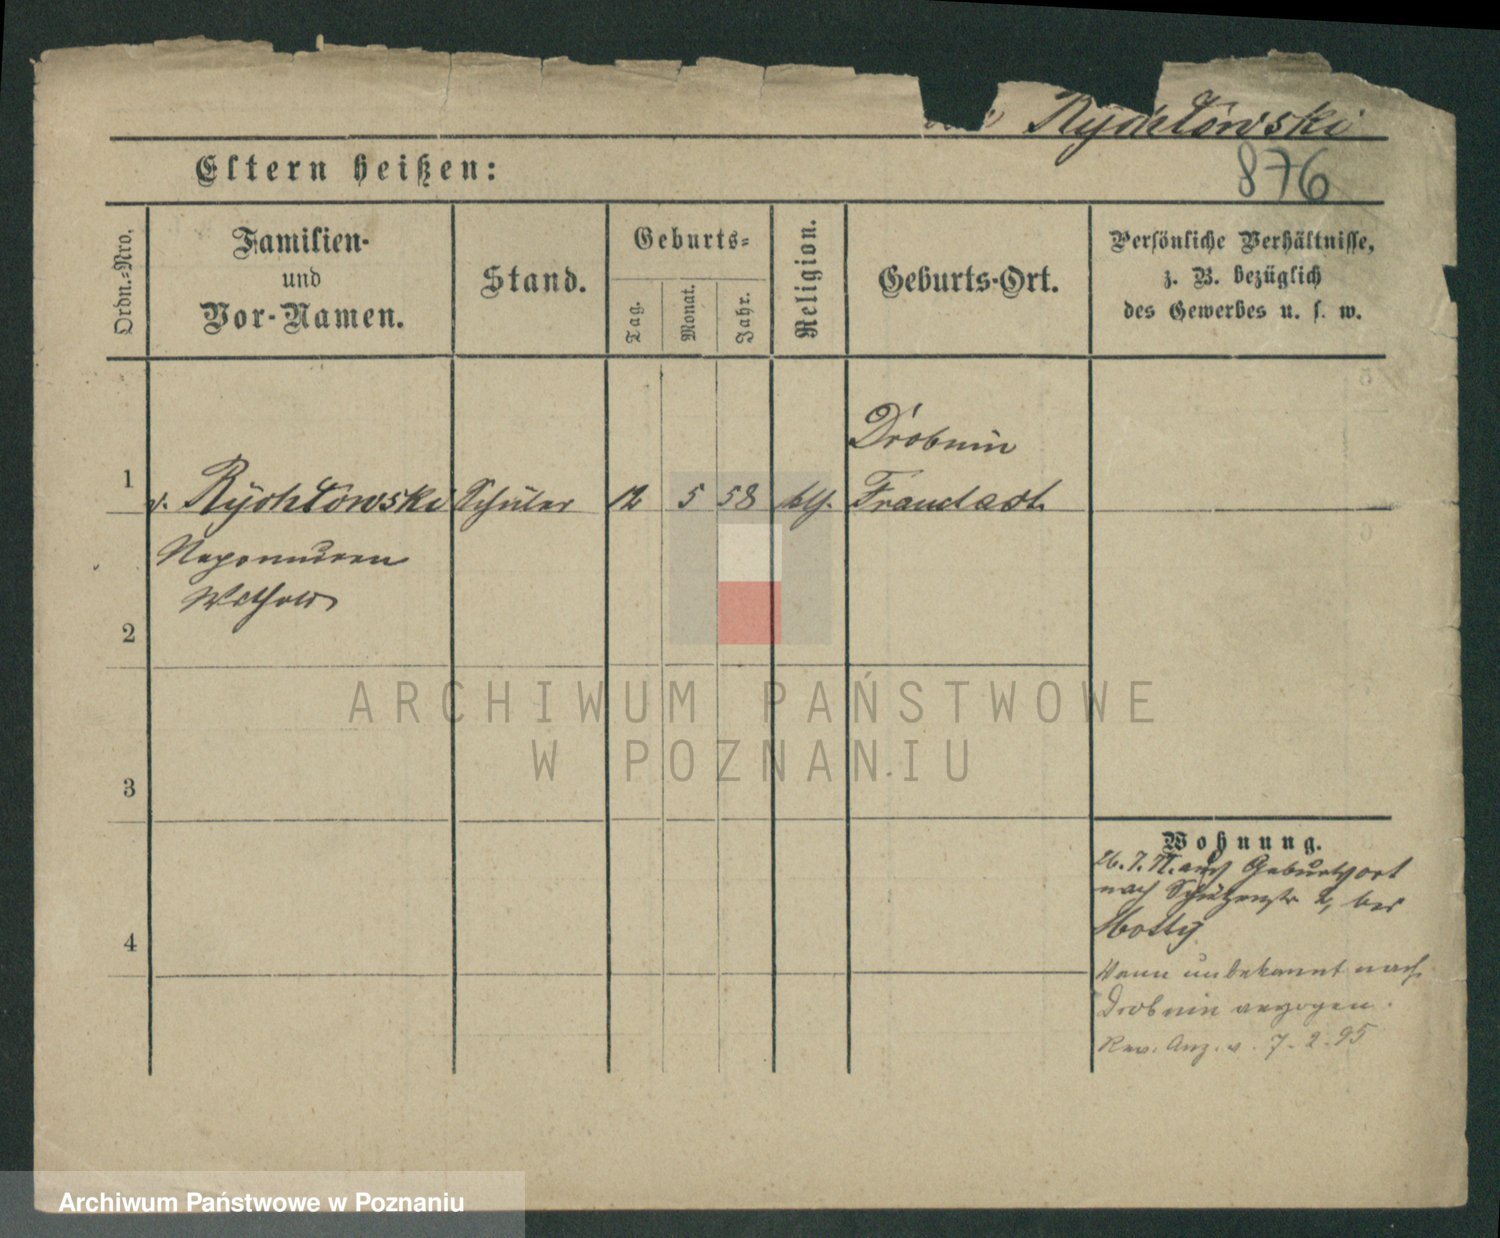 Rychłowski
876
Eltern heißen:
Ordn.-Nro.
Familien-
und
Vor-Namen.
Stand.
Geburts-
Tag.
Monat.
Jahr.
Religion.
Geburts-Ort.
Persönliche Verhältnisse,
z. B. bezüglich
des Gewerbes u. s. w.
Drobnin
1
v. Rychłowski Schüler 12 5 58 kth. Fraustadt
Nepomucen
Withold
2
3
4
Wohnung.
26. 7. 71. aus Geburtsort
nach Schützenstr 2, bei
Motty
Wann unbekannt nach
Drobnin verzogen.
Rev. Anz. v. 7. 2. 95
ARCHIWUM PAŃSTWOWE
W POZNANIU
Archiwum Państwowe w Poznaniu